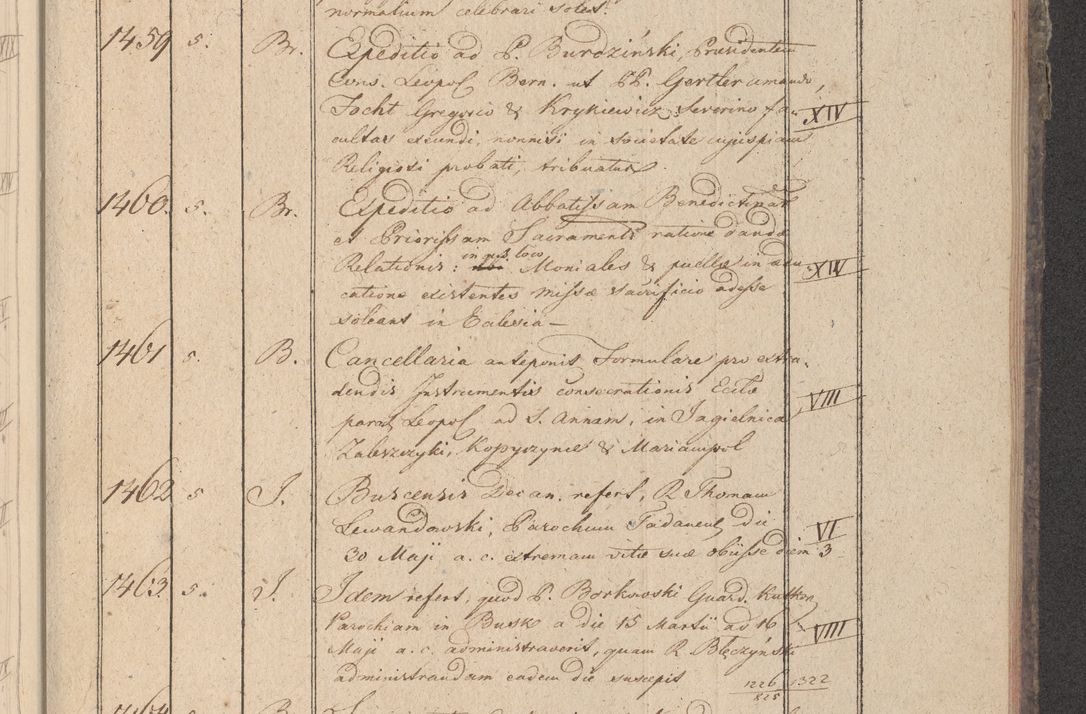 normalium celebrari solet.
1459 5. Br. Expeditio ad P. Burdziński, Præsidentem
Cons. Leopol Bern. ut PP. Gertler amando,
Jocht Gregorio & Krykiewicz Severino fa- XIV
cultas exeundi, nonnisi in societate cujuspiam
Religiosi probati, tribuatur.
1460. 5. Br. Expeditio ad Abbatissam Benedictinar
et Priorissam Sacramenti ratione dandæ
Relationis: in quo loco Moniales & puellæ in edu XIV
catione existentes missæ sacrificio adesse
soleant in Eclesia—
1461 5. B. Cancellaria anteponit Formulare pro extra.
dendis Instrumentis consecrationis Eccłæ VIII
paroch Leopol ad S. Annam, in Jagielnica
Zaleszczyki, Kopyczynce & Mariampol
1462 5 J. Buscensis Decan. refert, R Thomam
Lewandowski, Parochum Tadanens, die VI
30 Maji a. c. extremam vitæ suæ obiisse diem 3
1463. 5. J. Idem refert, quod P. Borkowski Guard. Kutkor,
Parochiam in Busk a die 15 Martii ad 16 VIII
Maji a. c. administraverit, quam R. Błęczyński
administrandam eadem die suscepit
1226 1322
825
1464